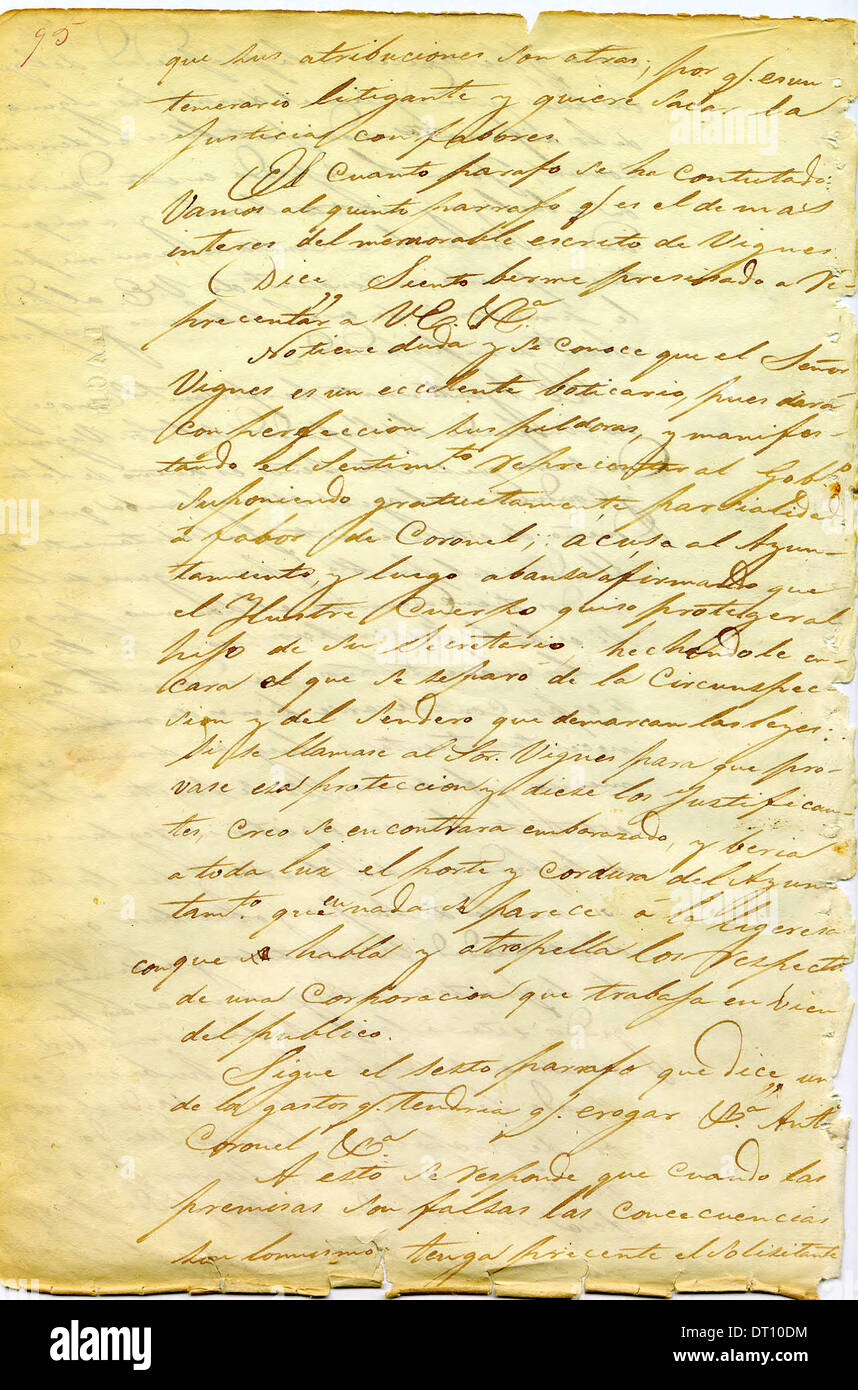 95
que sus atribuciones son otras; por q.e es un
temerario litigante y quiere sacar la
Justicia con fabores.
El cuarto parafo se ha contestado:
Vamos al quinto parrafo q.e es el de mas
interes del memorable escrito de Vignes
Dice "Siento berme presisado a re-
precentar a V.E. &.a
No tiene duda y se conoce que el Señor
Vignes es un eccelente boticario, pues dará
con perfeccion sus pildoras, y manifes-
tando el sentim.to represcentar al Gob.o
suponiendo gratuitamente parcialidad
á fabor de Coronel; acusa al Ayun-
tamiento, y luego abansa afirmando que
el Ylustre Cuerpo quiso proteger al
hijo de su Secretario; hechandole en
cara el que se separó de la Circunspec
sion y del sendero que demarcan las leyes.
Si se llamase al Sor. Vignes para que pro-
vase esa proteccion y diese los Justifican-
tes, creo se encontrara embarazado, y beria
a toda luz el porte y cordura del Ayun-
tam.to que en nada se parece á la ligeresa
con que se habla y atropella los respectos
de una Corporacion que trabaja en vien
del publico.
Sigue el sesto parrafo que dice, "un
de los gastos q.e tendria q.e erogar &.a Ant.
Coronel &.a
A esto se responde que cuando las
premisas son falsas las concecuencias
son lo mismo, tenga precente el solisitante
alamy
DT10DM
www.alamy.com